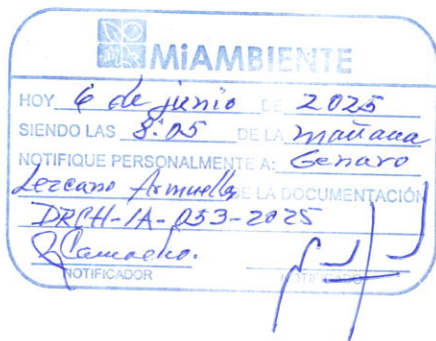 MiAMBIENTE
HOY 6 de junio DE 2025
SIENDO LAS 8:05 DE LA mañana
NOTIFIQUE PERSONALMENTE A: Genaro
Lezcano Armuelles DE LA DOCUMENTACIÓN
DRCH-IA-053-2025
JCamacho.
NOTIFICADOR NOTIFICADO